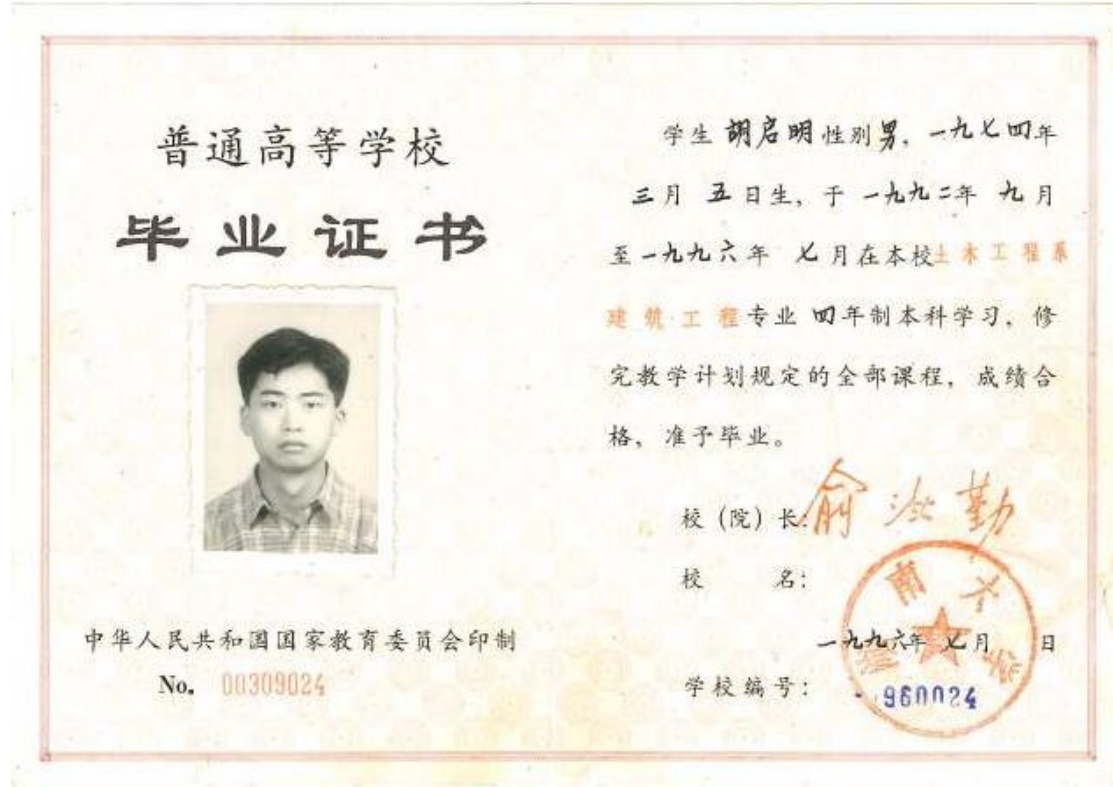 普通高等学校
毕业证书
中华人民共和国国家教育委员会印制
No. 00309024
学生 胡启明 性别 男，一九七四年
三月 五日生，于 一九九二年 九月
至一九九六年 七月在本校土木工程系
建筑工程专业 四年制本科学习，修
完教学计划规定的全部课程，成绩合
格，准予毕业。
校（院）长：俞 勤
校 名：
湖南大学
一九九六年 七月 日
学校编号：960024